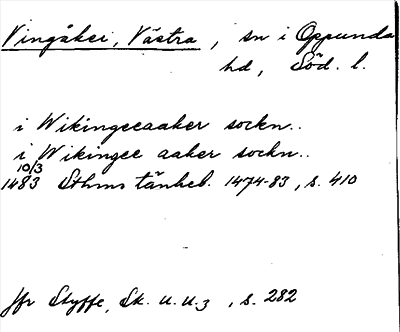 Vingåker, Västra, sn i Oppunda
hd, Söd. l.
i Wikingeeaaker sockn..
i Wikingee aaker sockn..
10/3
1483 Sthms tänkeb. 1474-83, s. 410
Jfr Styffe, Sk. u. u. 3, s. 282